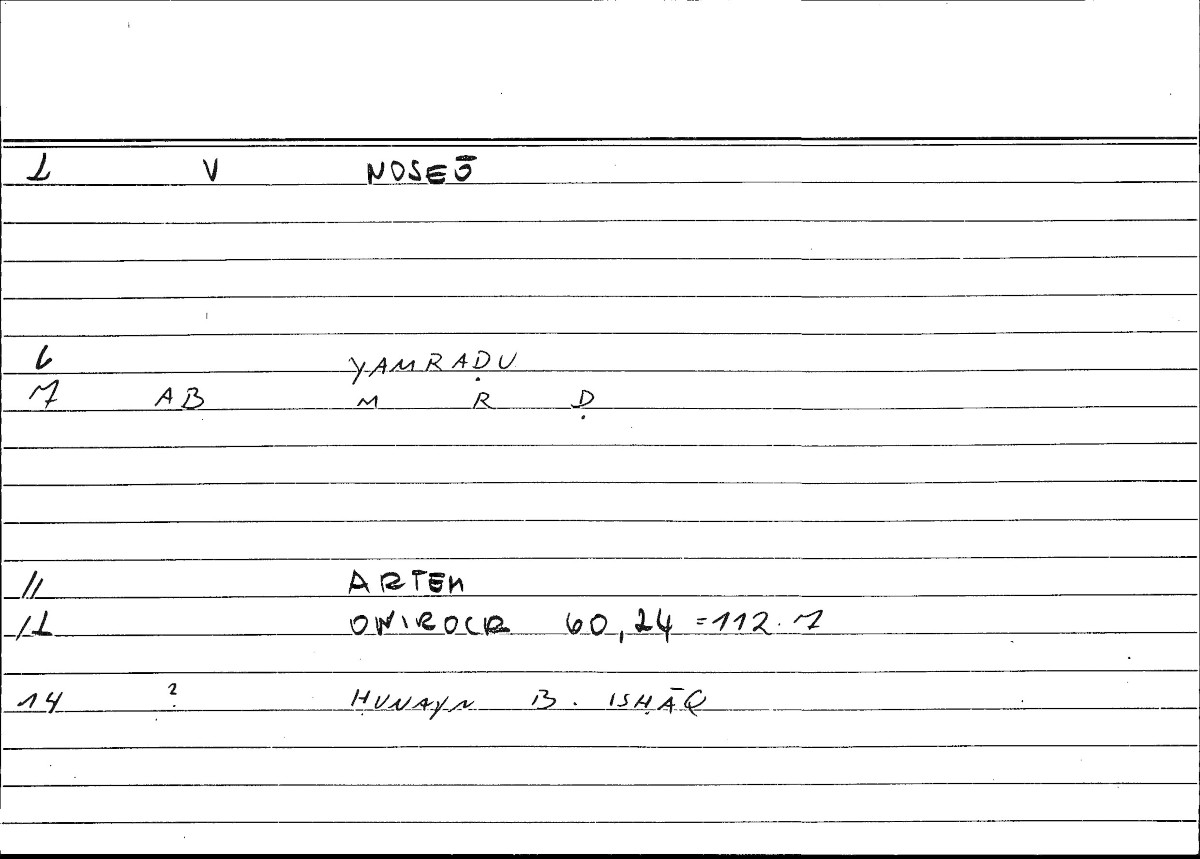 2 V NOSEŌ
6 YAMRAḌU
7 AB M R Ḍ
11 ARTEM
12 ONIROCR 60,24 =112.7
14 ? ḤUNAYN B. ISḤĀQ